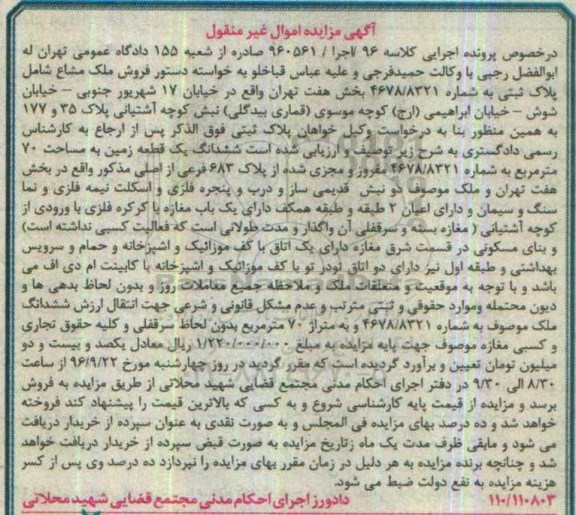 آگهی مزایده اموال غیر منقول
درخصوص پرونده اجرایی کلاسه ۹۶ /اجرا / ۹۶۰۵۶۱ صادره از شعبه ۱۵۵ دادگاه عمومی تهران له
ابوالفضل رجبی با وکالت حمیدفرجی و علیه عباس قباخلو به خواسته دستور فروش ملک مشاع شامل
پلاک ثبتی به شماره ۴۶۷۸/۸۳۲۱ بخش هفت تهران واقع در خیابان ۱۷ شهریور جنوبی – خیابان
شوش – خیابان ابراهیمی (ارج) کوچه موسوی (قماری بیدگلی) نبش کوچه آشتیانی پلاک ۳۵ و ۱۷۷
به همین منظور بنا به درخواست وکیل خواهان پلاک ثبتی فوق الذکر پس از ارجاع به کارشناس
رسمی دادگستری به شرح زیر توصیف و ارزیابی شده است ششدانگ یک قطعه زمین به مساحت ۷۰
مترمربع به شماره ۴۶۷۸/۸۳۲۱ مفروز و مجزی شده از پلاک ۶۸۳ فرعی از اصلی مذکور واقع در بخش
هفت تهران و ملک موصوف دو نبش قدیمی ساز و درب و پنجره فلزی و اسکلت نیمه فلزی و نما
سنگ و سیمان و دارای اعیان ۲ طبقه و طبقه همکف دارای یک باب مغازه با کرکره فلزی با ورودی از
کوچه آشتیانی ( مغازه بسته و سرقفلی آن واگذار و مدت طولانی است که فعالیت کسبی نداشته است)
و بنای مسکونی در قسمت شرق مغازه دارای یک اتاق با کف موزائیک و اشپزخانه و حمام و سرویس
بهداشتی و طبقه اول نیز دارای دو اتاق تودر تو با کف موزائیک و اشپزخانه با کابینت ام دی اف می
باشد و با توجه به موقعیت و متعلقات ملک و ملاحظه جمیع معاملات روز و بدون لحاظ بدهی ها و
دیون محتمله وموارد حقوقی و ثبتی مترتب و عدم مشکل قانونی و شرعی جهت انتقال ارزش ششدانگ
ملک موصوف به شماره ۴۶۷۸/۸۳۲۱ و به متراژ ۷۰ مترمربع بدون لحاظ سرقفلی و کلیه حقوق تجاری
و کسبی مغازه موصوف جهت پایه مزایده به مبلغ ۱/۲۲۰/۰۰۰/۰۰۰ ریال معادل یکصد و بیست و دو
میلیون تومان تعیین و برآورد گردیده است که مقرر گردید در روز چهارشنبه مورخ ۹۶/۹/۲۲ از ساعت
۸/۳۰ الی ۹/۳۰ در دفتر اجرای احکام مدنی مجتمع قضایی شهید محلاتی از طریق مزایده به فروش
برسد و مزایده از قیمت پایه کارشناسی شروع و به کسی که بالاترین قیمت را پیشنهاد کند فروخته
خواهد شد و ده درصد بهای مزایده فی المجلس و به صورت نقدی به عنوان سپرده از خریدار دریافت
می شود و مابقی ظرف مدت یک ماه زتاریخ مزایده به صورت قبض سپرده از خریدار دریافت خواهد
شد و چنانچه برنده مزایده به هر دلیل در زمان مقرر بهای مزایده را نپردازد ده درصد وی پس از کسر
هزینه مزایده به نفع دولت ضبط می شود.
۱۱۰/۱۱۰۸۰۳ دادورز اجرای احکام مدنی مجتمع قضایی شهید محلاتی